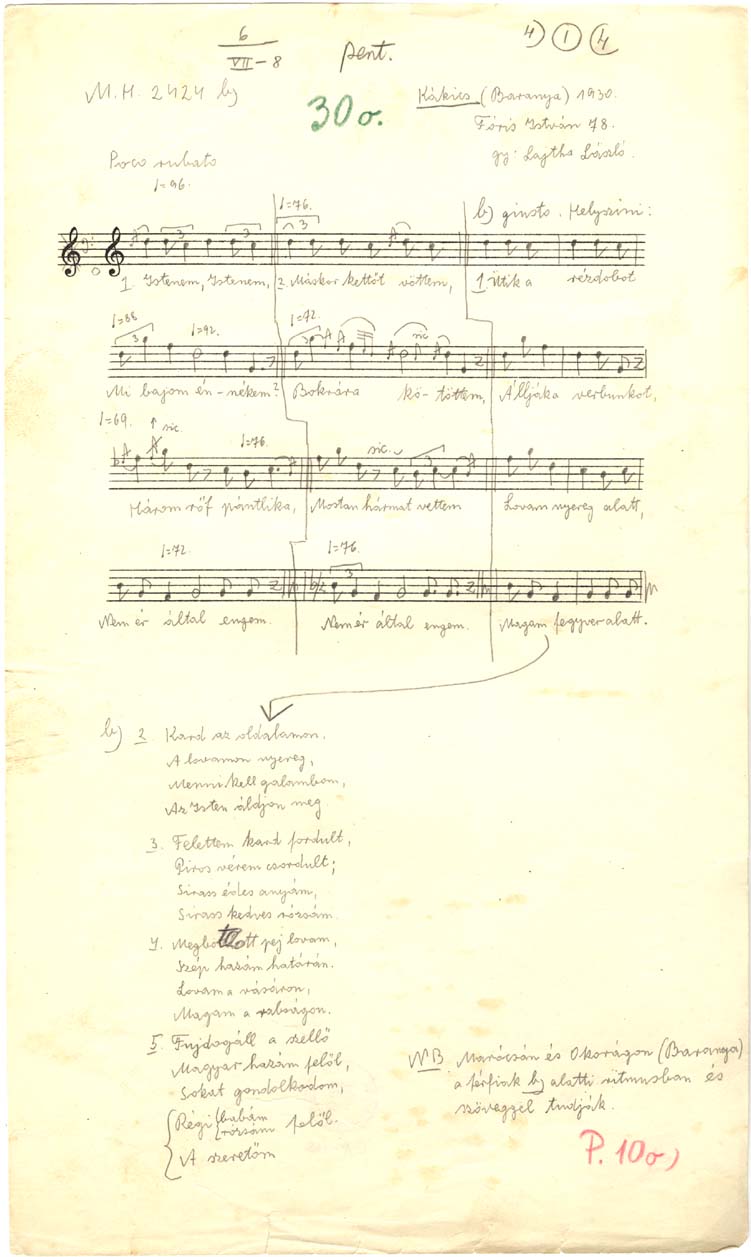 6
VII-8
pent.
4) 1 (4
M.H. 2424 b)
30 o.
Kákics (Baranya) 1930.
Fóris István 78.
gy: Lajtha László.
Poco rubato
♩=96.
♩=76.
b) giusto. Helyszini:
3 3 3
1. Istenem, Istenem, 2. Máskor kettőt vöttem, 1. Ütik a rézdobot
♩=88 ♩=92. ♩=72.
3 sic
Mi bajom én-nékem? Bokrára kö-töttem, Álljáka verbunkot,
♩=69. sic ♩=76. sic.
3
Három rőf pántlika, Mostan hármat vettem Lovam nyereg alatt,
♩=72 ♩=76.
3
Nem ér által engem. Nem ér által engem. Magam fegyver alatt.
b) 2. Kard az oldalamon,
A lovamon nyereg,
Menni kell galambom,
Az Isten áldjon meg
3. Felettem kard fordult,
Piros vérem csordult;
Sirass édes anyám,
Sirass kedves rózsám.
4. Megbotlott pej lovam,
Szép hazám határán.
Lovam a vásáron,
Magam a rabságon.
5. Fujdogáll a szellő
Magyar hazám felől,
Sokat gondolkodom,
Régi babám felől.
rózsám
A szeretőm
NB Marócsán és Okorágon (Baranya)
a férfiak b) alatti ritmusban és
szöveggel tudják.
P. 10 o)